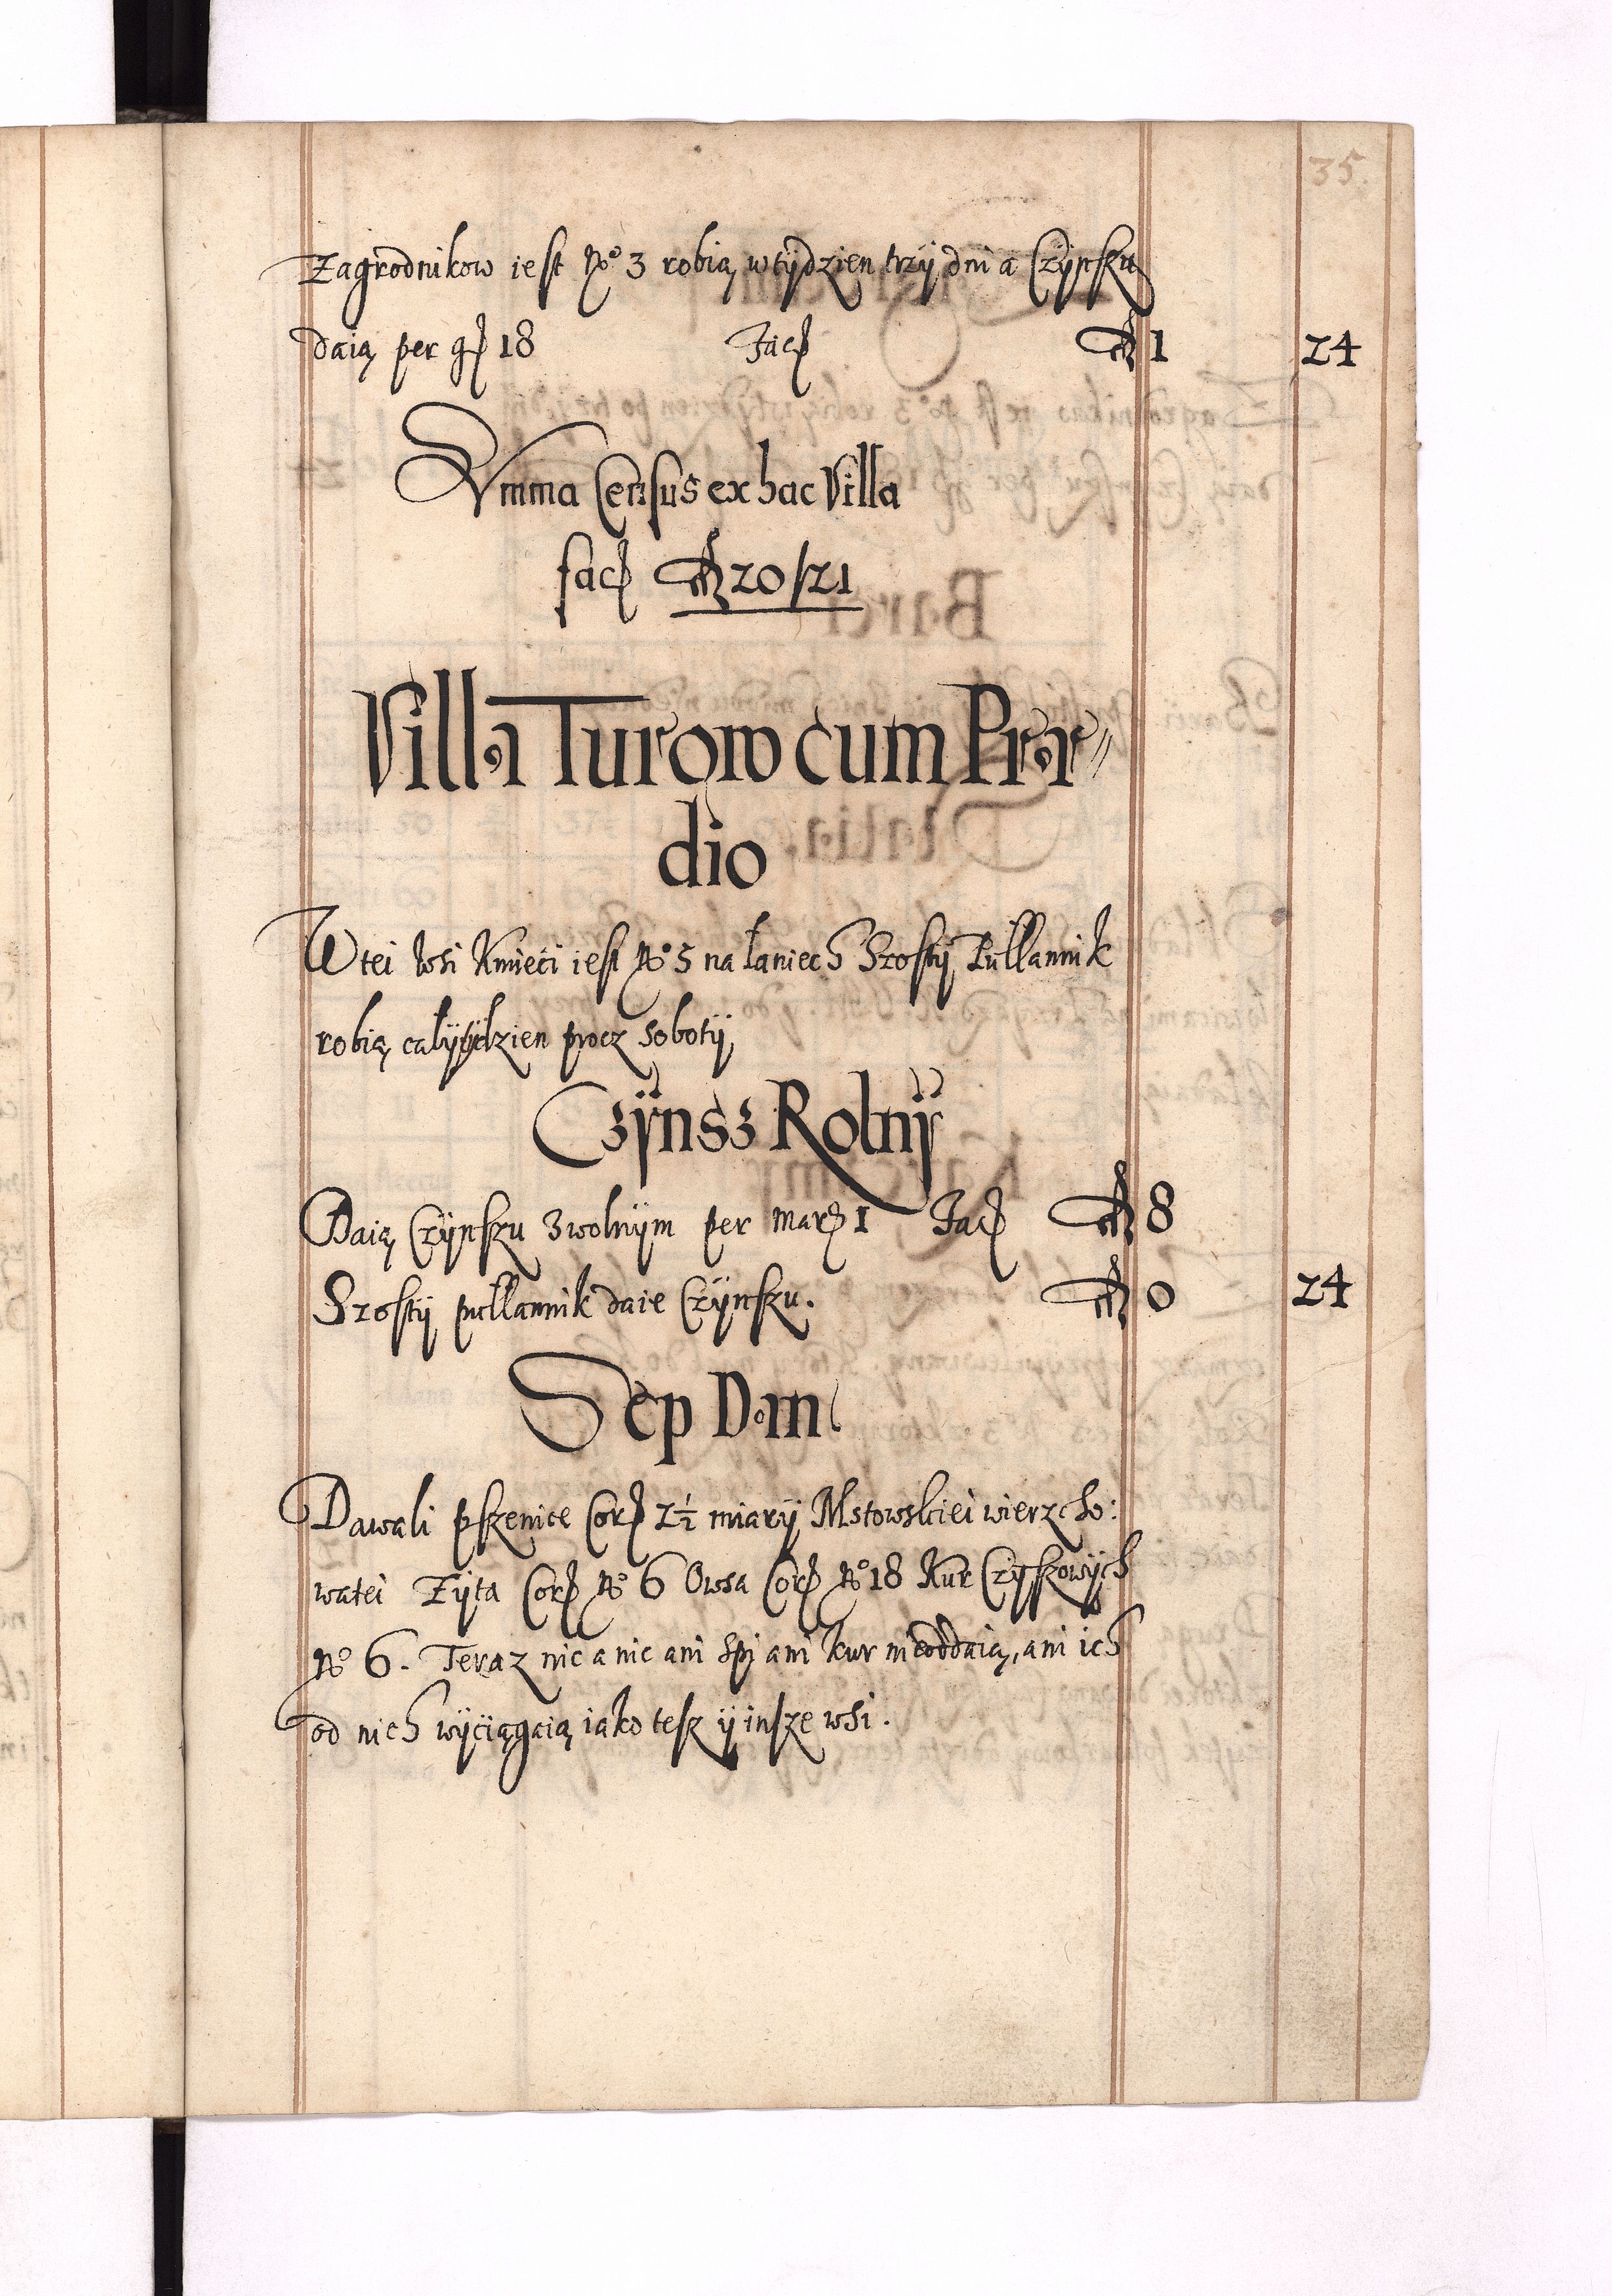 35.
Zagrodnikow iest No 3 robią wtÿdzien trzÿ dni a Czÿnszu
daią per gr 18 Facit fl 1 24
Summa Census ex hac Villa
facit fl 20/21
Villa Turow cum Præ⸗
dio
W tei wsi Kmieći iest No 5 na łaniech Szostÿ Pułłannik
robią całÿ tÿdzien procz sobotÿ
Czÿnsz Rolnÿ
Daią Czÿnszu zwolnÿm per marc 1 Facit fl 8
Szostÿ pułłannik daie Czÿnszu. fl 0 24
Sep Dan
Dawali pszenice Cor 2½ miarÿ Mstowskiei wierzcho:
watei Zÿta Cor No 6 Owsa Cor No 18 Kur Czÿszowÿch
No 6. Teraz nic a nic ani Spi ani kur nieoddaią, ani ich
od nich wÿćiągaią iako tesz ÿ insze wsi.